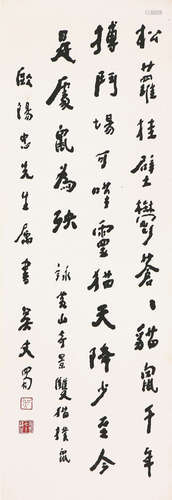 松蘿挂壁鬱蒼〻貓鼠千年
搏鬥場可惜靈猫天降少至今
是處鼠為殃 詠黄山奇景雙猫撲鼠
歐陽忠先生屬書 吴丈蜀